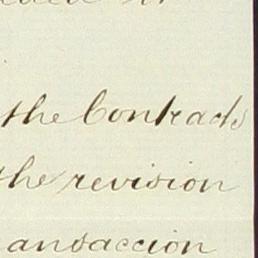 the Contracts
the revision
ansaccion